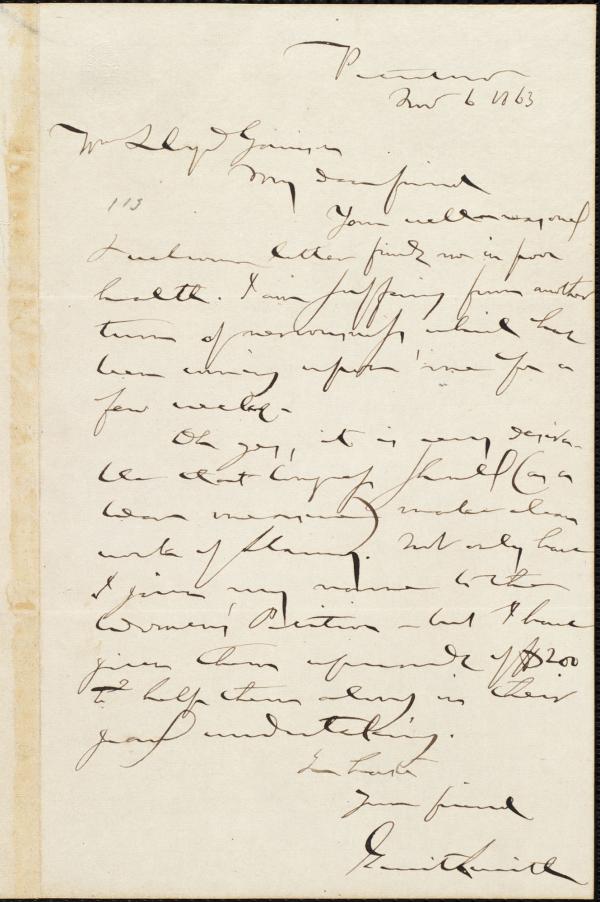 Peterboro
Nov 6 1863
Wm Lloyd Garrison
My dear friend
113
Your well-reasoned
& welcome letter finds me in poor
health. I am suffering from another
turn of nervousness which has
been coming upon me for a
few weeks.
Oh yes, it is very desira-
ble that Congress should (as a
war measure) make clean
work of Slavery. Not only have
I given my name to the
Women's Petition - but I have
given them upwards of $200
to help them along in their
great undertaking.
In haste
Your friend
Gerrit Smith